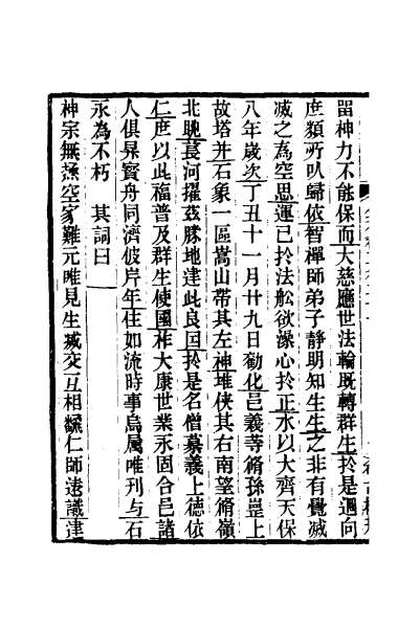 畱神力不能保而大慈應世法輪旣轉羣生於是迴向
庶類所㕥歸依智禪師弟子靜明知生生之非有覺滅
滅之為空思運已於法舩欲澡心於正水以大齊天保
八年歲次丁丑十一月廿九日勸化邑義䓁脩孫㟴上
故塔并石象一區嵩山帶其左神堆俠其右南望脩嶺
北眺萇河擢茲勝地建此良因於是名僧慕義上德依
仁庶以此福普及群生使國祚大康世業永固合邑諸
人俱昇寶舟同濟彼岸年住如流時事烏屬唯刊与石
永為不朽 其詞曰
神宗無撓空家難元唯見生滅交互相纏仁師遠識津